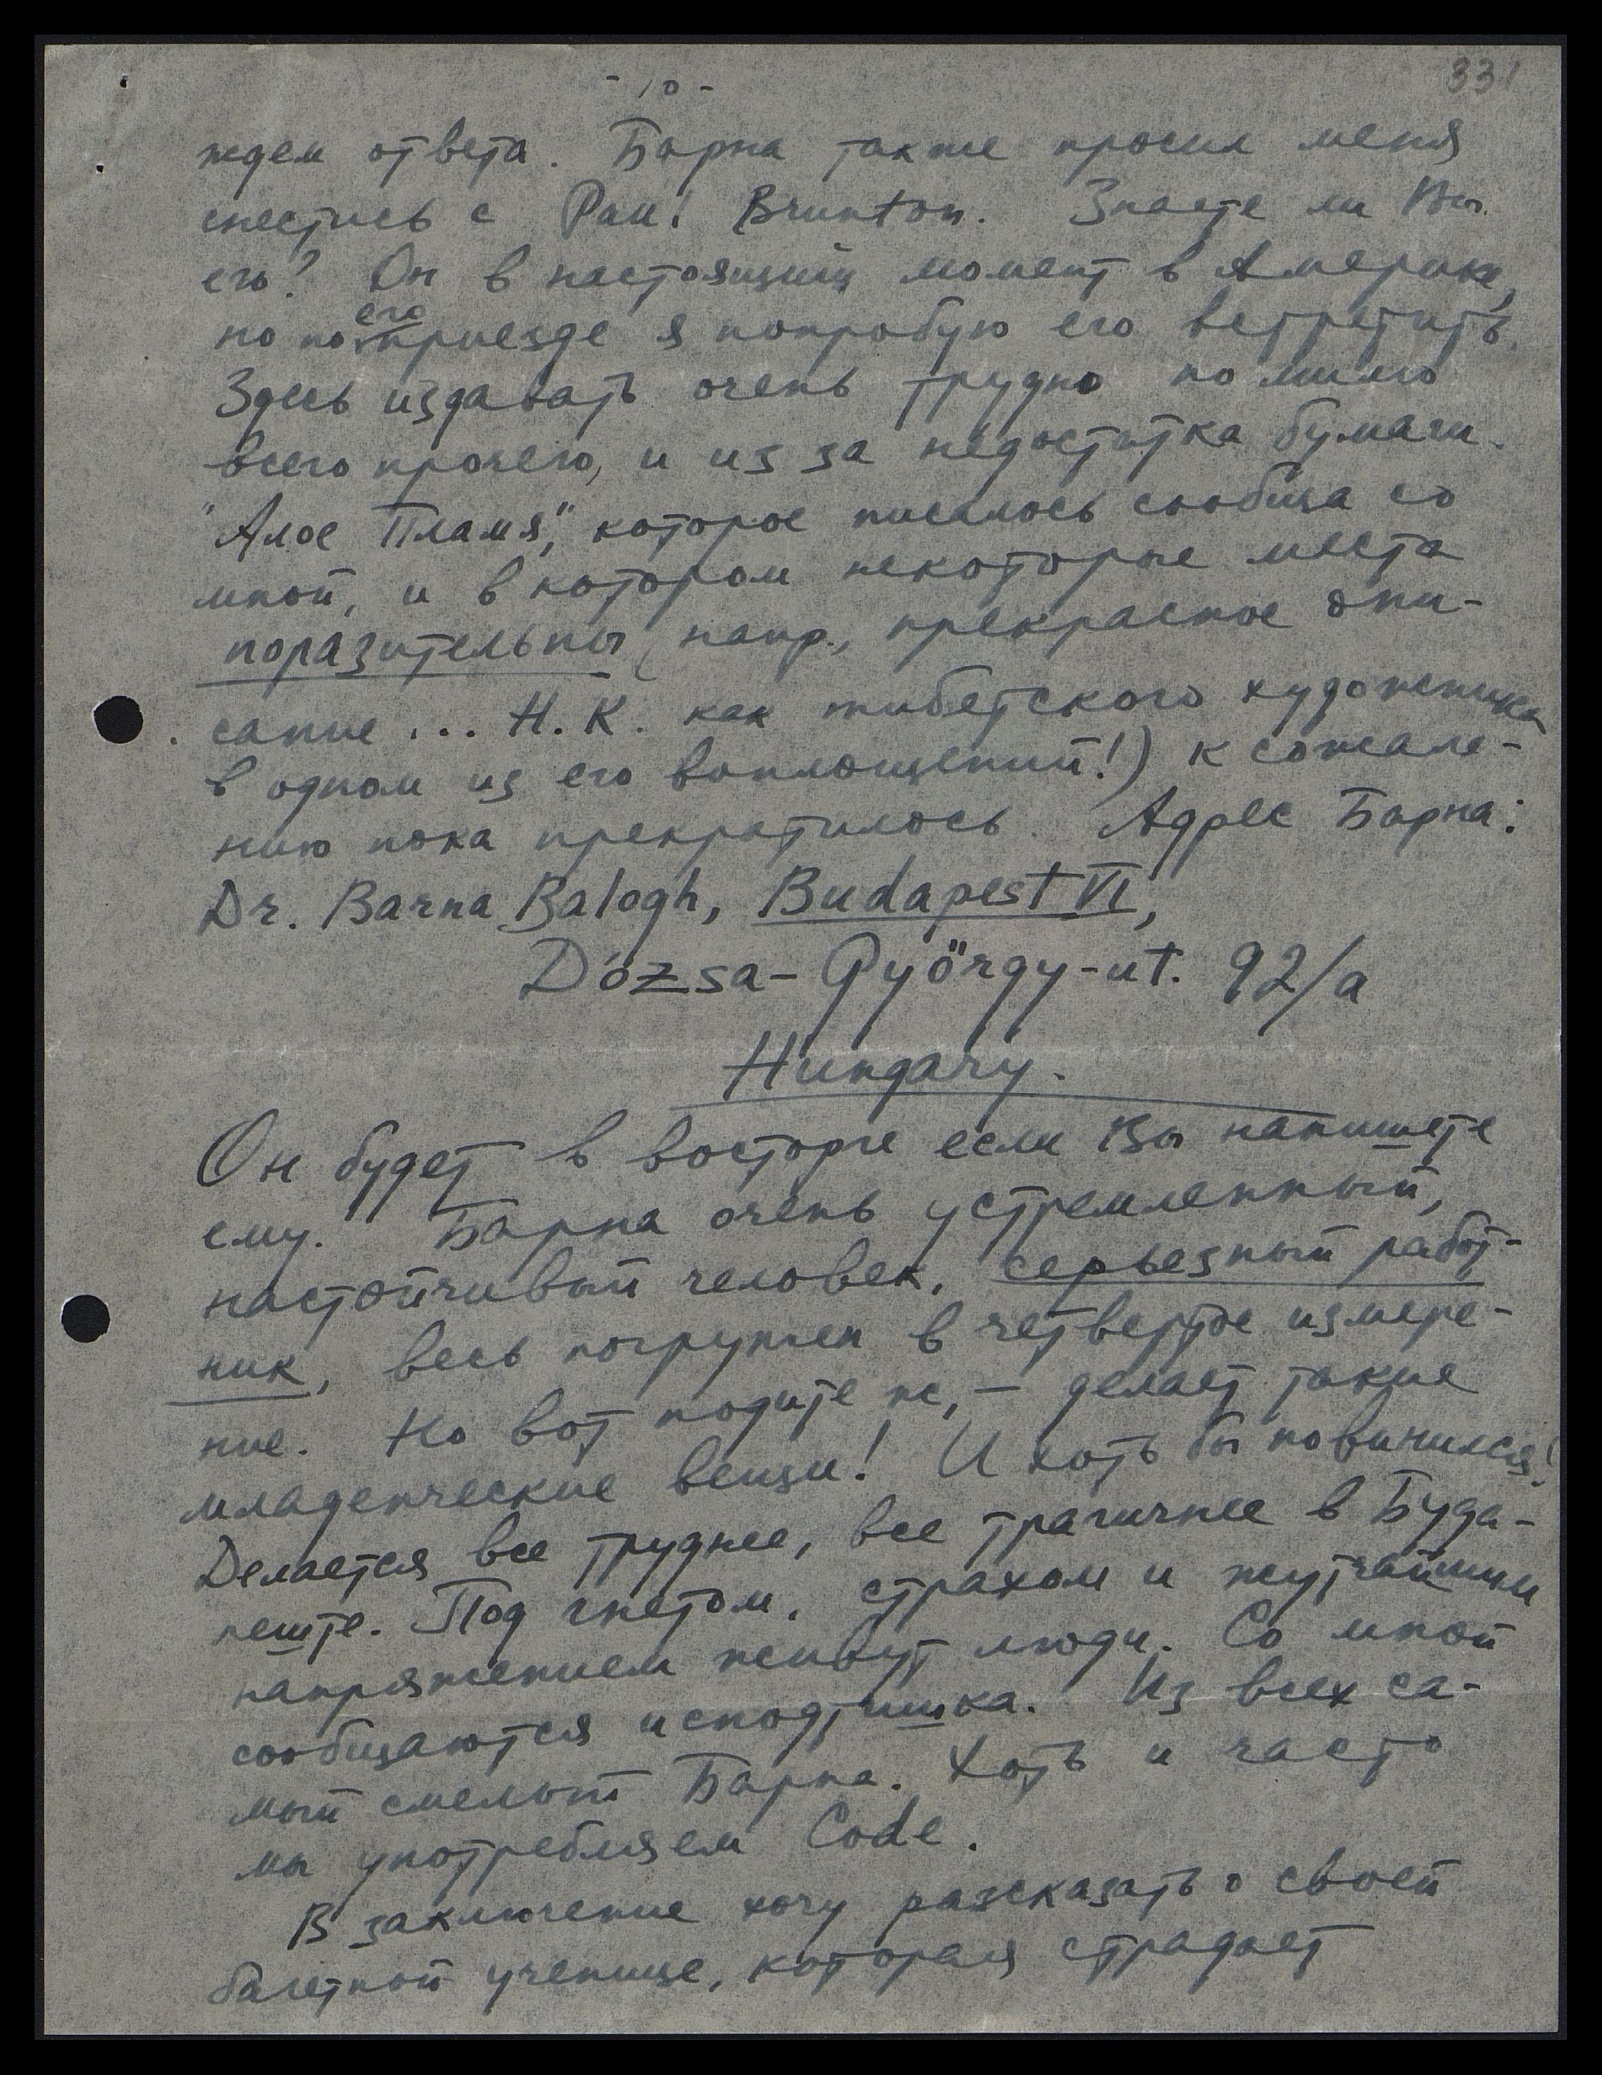 - 10 -
331
ждем ответа. Барна также просил меня
снестись с Paul Brunton. Знаете ли Вы
его? Он в настоящий момент в Америке,
но по его приезде я попробую его встретить.
Здесь издавать очень трудно помимо
всего прочего, и из за недостатка бумаги.
"Алое Пламя", которое писалось сообща со
мной, и в котором некоторые места
поразительны (напр., прекрасное опи-
сание ... Н.К. как тибетского художника
в одном из его воплощений!) к сожале-
нию пока прекратилось. Адрес Барна:
Dr. Barna Balogh, Budapest VI,
Dózsa-György-ut. 92/a
Hungary.
Он будет в восторге если Вы напишете
ему. Барна очень устремленный,
настойчивый человек, серьезный работ-
ник, весь погружен в четвертое измере-
ние. Но вот подите же, - делает такие
младенческие вещи! И хоть бы повинился!
Делается все труднее, все трагичнее в Буда-
пеште. Под гнетом, страхом и жутчайшим
напряжением живут люди. Со мной
сообщаются исподтишка. Из всех са-
мый смелый Барна. Хоть и часто
мы употребляем Code.
В заключение хочу рассказать о своей
балетной ученице, которая страдает